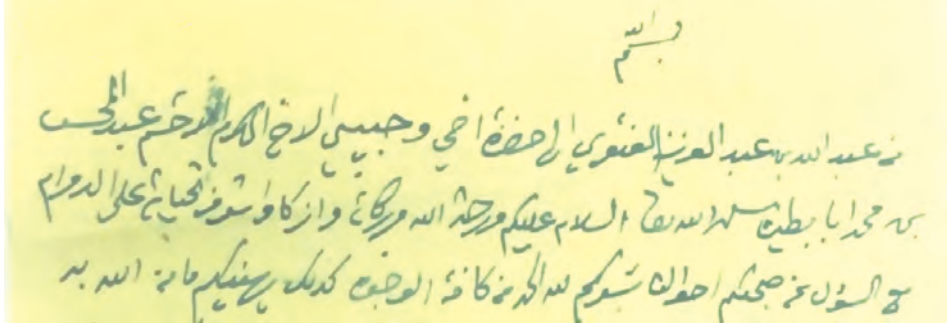 بسم الله
من عبد الله بن عبد العزيز العنقري الى حضرة اخي وحبيبي الاخ المكرم الاحشم عبد المحسن
بن محمد ابا بطين سلمه الله تعالى السلام عليكم ورحمة الله وبركاته وازكا واشرف تحياته على الدوام
مع السؤل عن صحتكم احوالنا تسركم لله الحمد من كافة الوجوه كذلك يهنيكم ما من الله به